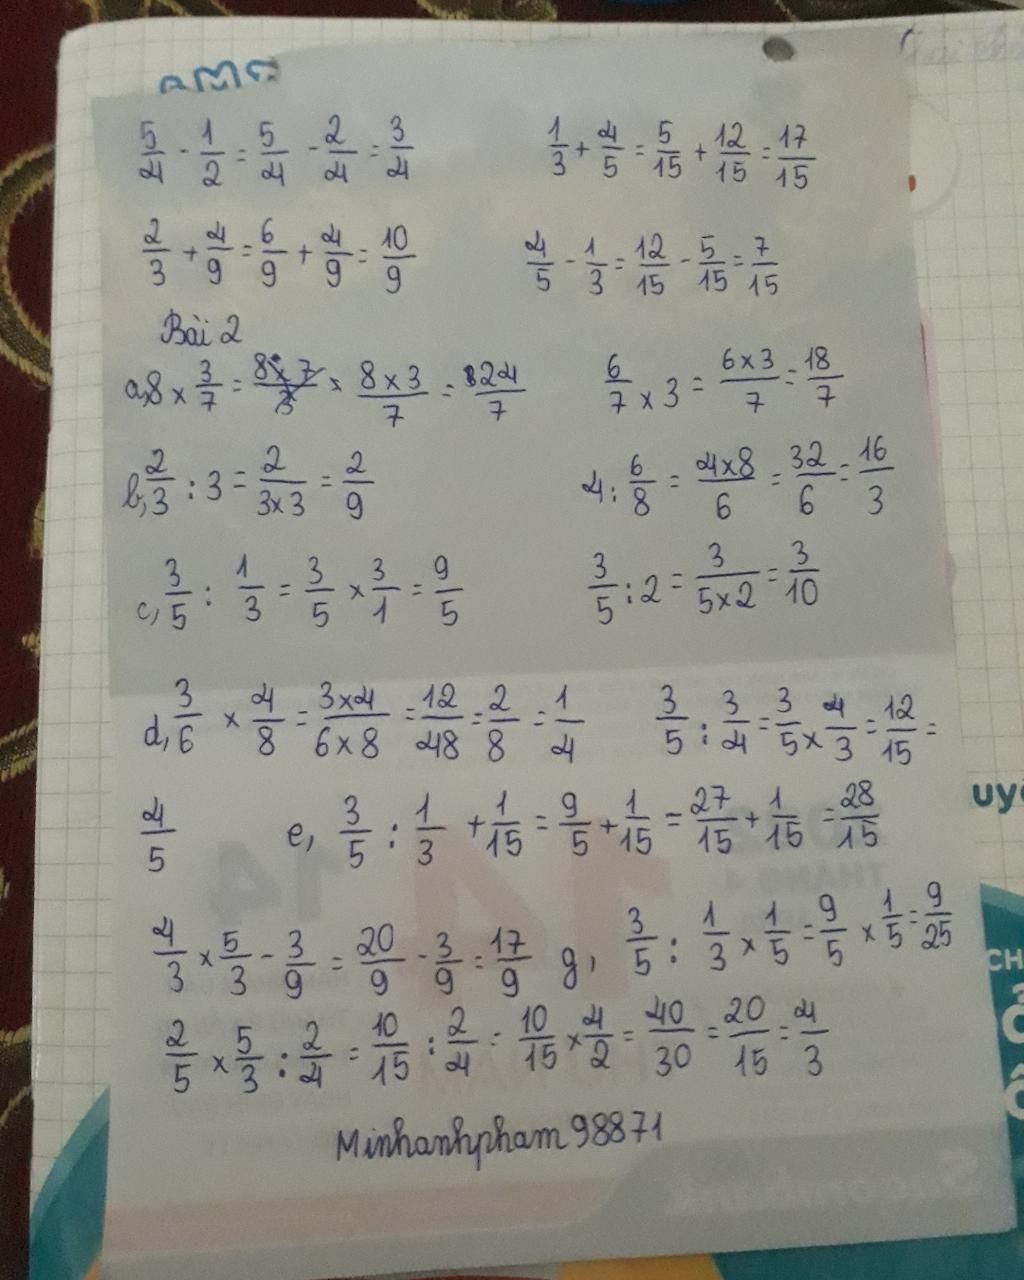 5/4 - 1/2 = 5/4 - 2/4 = 3/4    1/3 + 4/5 = 5/15 + 12/15 = 17/15
2/3 + 4/9 = 6/9 + 4/9 = 10/9    4/5 - 1/3 = 12/15 - 5/15 = 7/15
Bài 2
a, 8 × 3/7 = 8 × 3/7 = 24/7    6/7 × 3 = 6×3/7 = 18/7
b, 2/3 : 3 = 2/3×3 = 2/9    4 : 6/8 = 4×8/6 = 32/6 = 16/3
c, 3/5 : 1/3 = 3/5 × 3/1 = 9/5    3/5 : 2 = 3/5×2 = 3/10
d, 3/6 × 4/8 = 3×4/6×8 = 12/48 = 2/8 = 1/4    3/5 : 3/4 = 3/5 × 4/3 = 12/15 =
4/5    e, 3/5 : 1/3 + 1/15 = 9/5 + 1/15 = 27/15 + 1/15 = 28/15
4/3 × 5/3 - 3/9 = 20/9 - 3/9 = 17/9    g, 3/5 : 1/3 × 1/5 = 9/5 × 1/5 = 9/25
2/5 × 5/3 : 2/4 = 10/15 : 2/4 = 10/15 × 4/2 = 40/30 = 20/15 = 4/3
Minhanhpham98871
uyê
CH